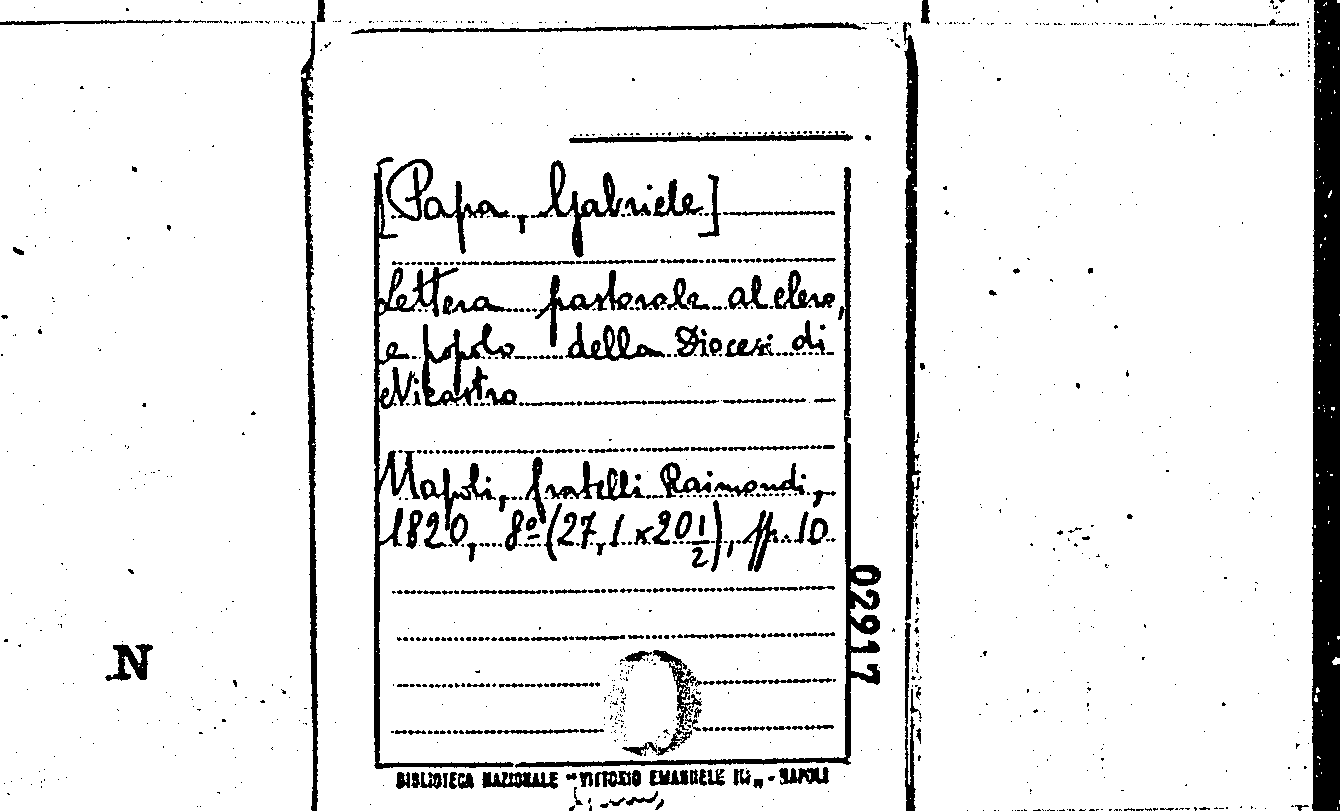 [Papa, Gabriele]
Lettera pastorale al clero,
e popolo della Diocesi di
Nicastro
Napoli, fratelli Raimondi,
1820, 8º (27,1 x 20 1/2), ff. 10
02917
N
BIBLIOTECA NAZIONALE "VITTORIO EMANUELE III" - NAPOLI